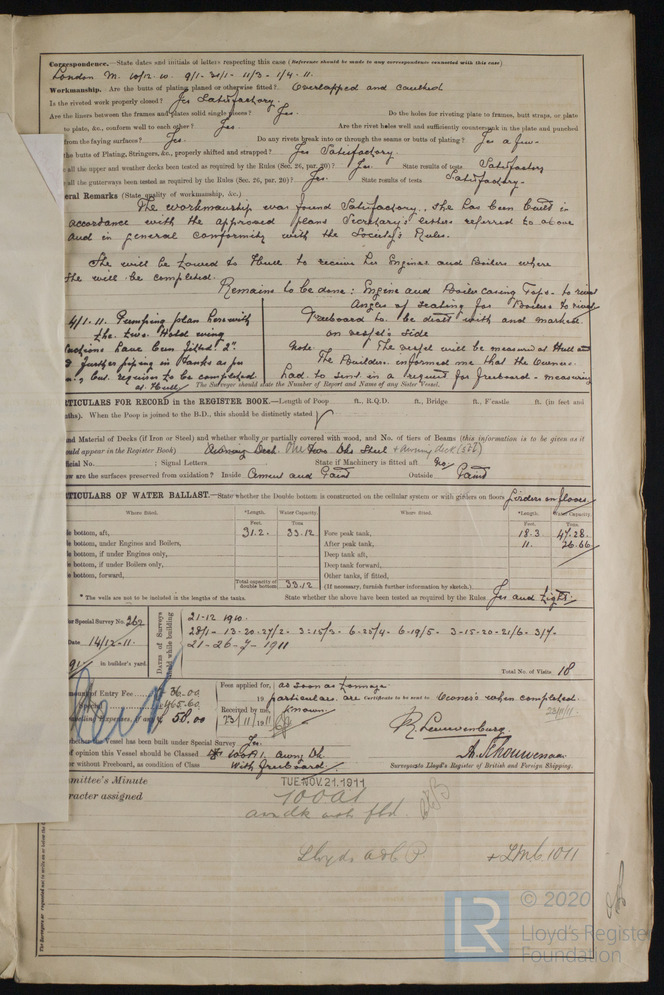 Correspondence.—State dates and initials of letters respecting this case (Reference should be made to any correspondence connected with this case)
London M. 10/12.10. 9/1- 31/1- 11/3- 1/4-11.
Workmanship. Are the butts of plating planed or otherwise fitted? Overlapped and caulked
Is the riveted work properly closed? Yes Satisfactory.
Are the liners between the frames and plates solid single pieces? Yes. Do the holes for riveting plate to frames, butt straps, or plate
to plate, &c., conform well to each other? Yes. Are the rivet holes well and sufficiently countersunk in the plate and punched
from the faying surfaces? Yes. Do any rivets break into or through the seams or butts of plating? Yes a few-
the butts of Plating, Stringers, &c., properly shifted and strapped? Yes Satisfactory.
all the upper and weather decks been tested as required by the Rules (Sec. 26, par. 20)? Yes. State results of tests. Satisfactory
all the gutterways been tested as required by the Rules (Sec. 26, par. 20)? Yes. State results of tests Satisfactory-
eral Remarks (State quality of workmanship, &c.)
The workmanship was found Satisfactory, she has been built in
accordance with the approved plans Secretary's letters referred to above
and in general conformity with the Society's Rules.
She will be towed to Hull to receive her Engines and Boilers where
She will be completed.
Remains to be done: Engine and Boiler casing Tops- to rivet
Angles of Seating for Boilers to rivet
4/1-11. Pumping plan herewith
Freeboard to be dealt with and marked
the two Hold wing
on vessel's side
uctions have been fitted 2"
Note. The vessel will be measured at Hull and
Further piping in Tanks as per
The Builders informed me that the Owners
but requires to be completed
had to sent in a request for freeboard - measuring
at Hull
The Surveyor should state the Number of Report and Name of any Sister Vessel.
TICULARS FOR RECORD in the REGISTER BOOK.—Length of Poop ft., R.Q.D. ft., Bridge ft., F'castle ft. (in feet and
ths). When the Poop is joined to the B.D., this should be distinctly stated
nd Material of Decks (if Iron or Steel) and whether wholly or partially covered with wood, and No. of tiers of Beams (this information is to be given as it
ould appear in the Register Book) Awning Deck One Dk Steel + Awning dk (stl)
ficial No. ; Signal Letters State if Machinery is fitted aft No
ow are the surfaces preserved from oxidation? Inside Cement and Paint Outside Paint
TICULARS OF WATER BALLAST.—State whether the Double bottom is constructed on the cellular system or with girders on floors Girders on floors
Where fitted. *Length. Water Capacity. Where fitted. *Length. Water Capacity.
Feet. Tons Feet. Tons
e bottom, aft, 31.2. 33.12 Fore peak tank, 18.3 47.28.
e bottom, under Engines and Boilers, After peak tank, 11. 26.66
e bottom, if under Engines only, Deep tank aft,
e bottom, if under Boilers only, Deep tank forward,
e bottom, forward, Other tanks, if fitted,
Total capacity of double bottom 33.12 (If necessary, furnish further information by sketch.)
* The wells are not to be included in the lengths of the tanks. State whether the above have been tested as required by the Rules Yes and tight.
er Special Survey No. 262
Date 14/12-11.
91 in builder's yard.
Dates of Surveys held while building
21-12 1910.
28/1- 13-20-27/2- 3-15/3- 6-25/4- 6-19/5- 3-15-20-21/6- 3/7-
21-26-7-1911
Total No. of Visits 18
mount of Entry Fee £ 36.00
Fees applied for, as soon as tonnage
19 particulars are Certificate to be sent to Owners when completed.
Received by me, known.
velling Expenses, if any £ 58.00
23/11/1911
23/11/11-
R. Leeuwenburg.
A. Schouwenaar
Surveyors to Lloyd's Register of British and Foreign Shipping.
hether the Vessel has been built under Special Survey Yes.
opinion this Vessel should be Classed 100A1. Awng Dk.
or without Freeboard, as condition of Class With freeboard
mittee's Minute TUE.NOV.21.1911
racter assigned 100A1
Lloyds A & C P. + LMC 10 11
© 2020
LR
Lloyd's Register
Foundation